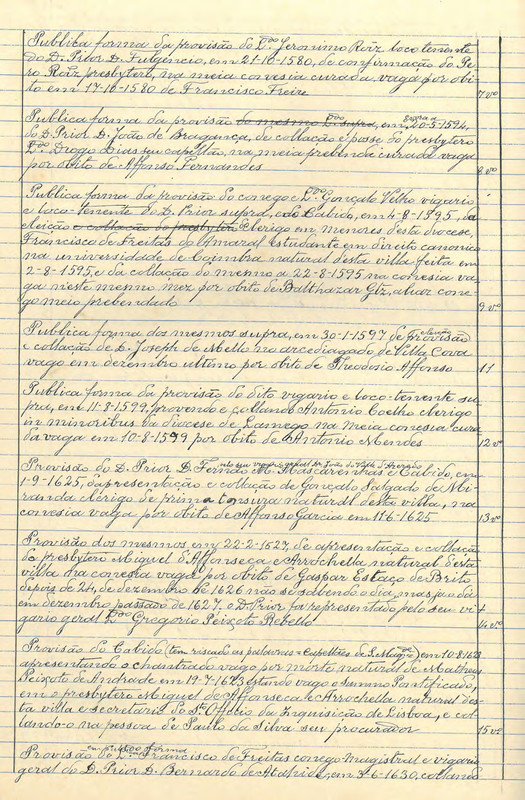 Publica forma da provisão do L.do Jeronimo Roiz loco tenente
do D. Prior D. Fulgencio, em 21-10-1580, de confirmação do Pe-
ro Roiz presbytero, na meia conesia curada, vaga por obi-
to em 17-10-1580 de Francisco Freire 7 vº
Publica forma da provisão do mesmo L.do supra, em 20-5-1594,
do D. Prior D. João de Bragança, de collação e posse do presbytero
L.do Diogo Dias seu capellão, na meia prebenda curada vaga
por obito de Affonso Fernandes 8 vº
Publica forma da provisão do conego e L.do Gonçalo Velho vigario
e loco-tenente do D. Prior supra, e do Cabido, em 4-8-1595, da
eleição e collação do presbytero clerigo em menores desta diocese,
Francisco de Freitas do Amaral estudante em direito canonico
na universidade de Coimbra natural desta villa feita em
2-8-1595, e da collação do mesmo a 22-8-1595 na conesia va-
ga neste mesmo mez por obito de Balthazar Glz, alias cone-
go meio prebendado 9 vº
Publica forma dos mesmos supra, em 30-1-1597 de eleição provisão
e collação de D. Joseph de Mello no arcediagado de Villa Cova
vago em dezembro ultimo por obito de Theodosio Affonso 11
Publica forma da provisão do dito vigario e loco-tenente su-
pra, em 11-8-1599, provendo e collando Antonio Coelho clerigo
in minoribus da diocese de Lamego na meia conesia cura-
da vaga em 10-8-1599 por obito de Antonio Mendes 12 vº
Provisão do D. Prior D. Fernão M. Mascarenhas e Cabido, em
1-9-1625, d'apresentação e collação de Gonçalo Salgado de Mi-
randa clerigo de prima tonsura natural desta villa, na
conesia vaga por obito de Affonso Garcia em 11-6-1625 13 vº
Provisão dos mesmos em 22-2-1627, de apresentação e collação
do presbytero Miguel d'Affonseca e Arrochella natural desta
villa na conesia vaga por obito de Gaspar Estaço de Brito
depois de 24, de dezembro de 1626 não se sabendo o dia, mas foi dia
em dezembro passado de 1627. O D. Prior foi representado pelo seu vi-
gario geral L.do Gregorio Peixoto Rebello 14 vº
Provisão do Cabido (tem riscado as palavras = capellães de S. Miguel) em 10-8-1623
apresentando o chantrado vago por morte natural de Matheus
Peixoto de Andrade em 19-7-1623, estando vago o summo Pontificado,
em o presbytero Miguel de Affonseca e Arrochella natural des-
ta villa e secretario do St.º Officio da Inquisição de Lisboa, e col-
lando-o na pessoa de Paulo da Silva seu procurador 15 vº
em publica forma
Provisão do L.do Francisco de Freitas conego magistral e vigario
geral do D. Prior D. Bernardo de Atahide, em 3-6-1630, collando